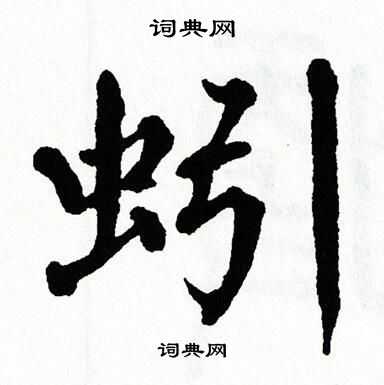 词典网
蚓
词典网